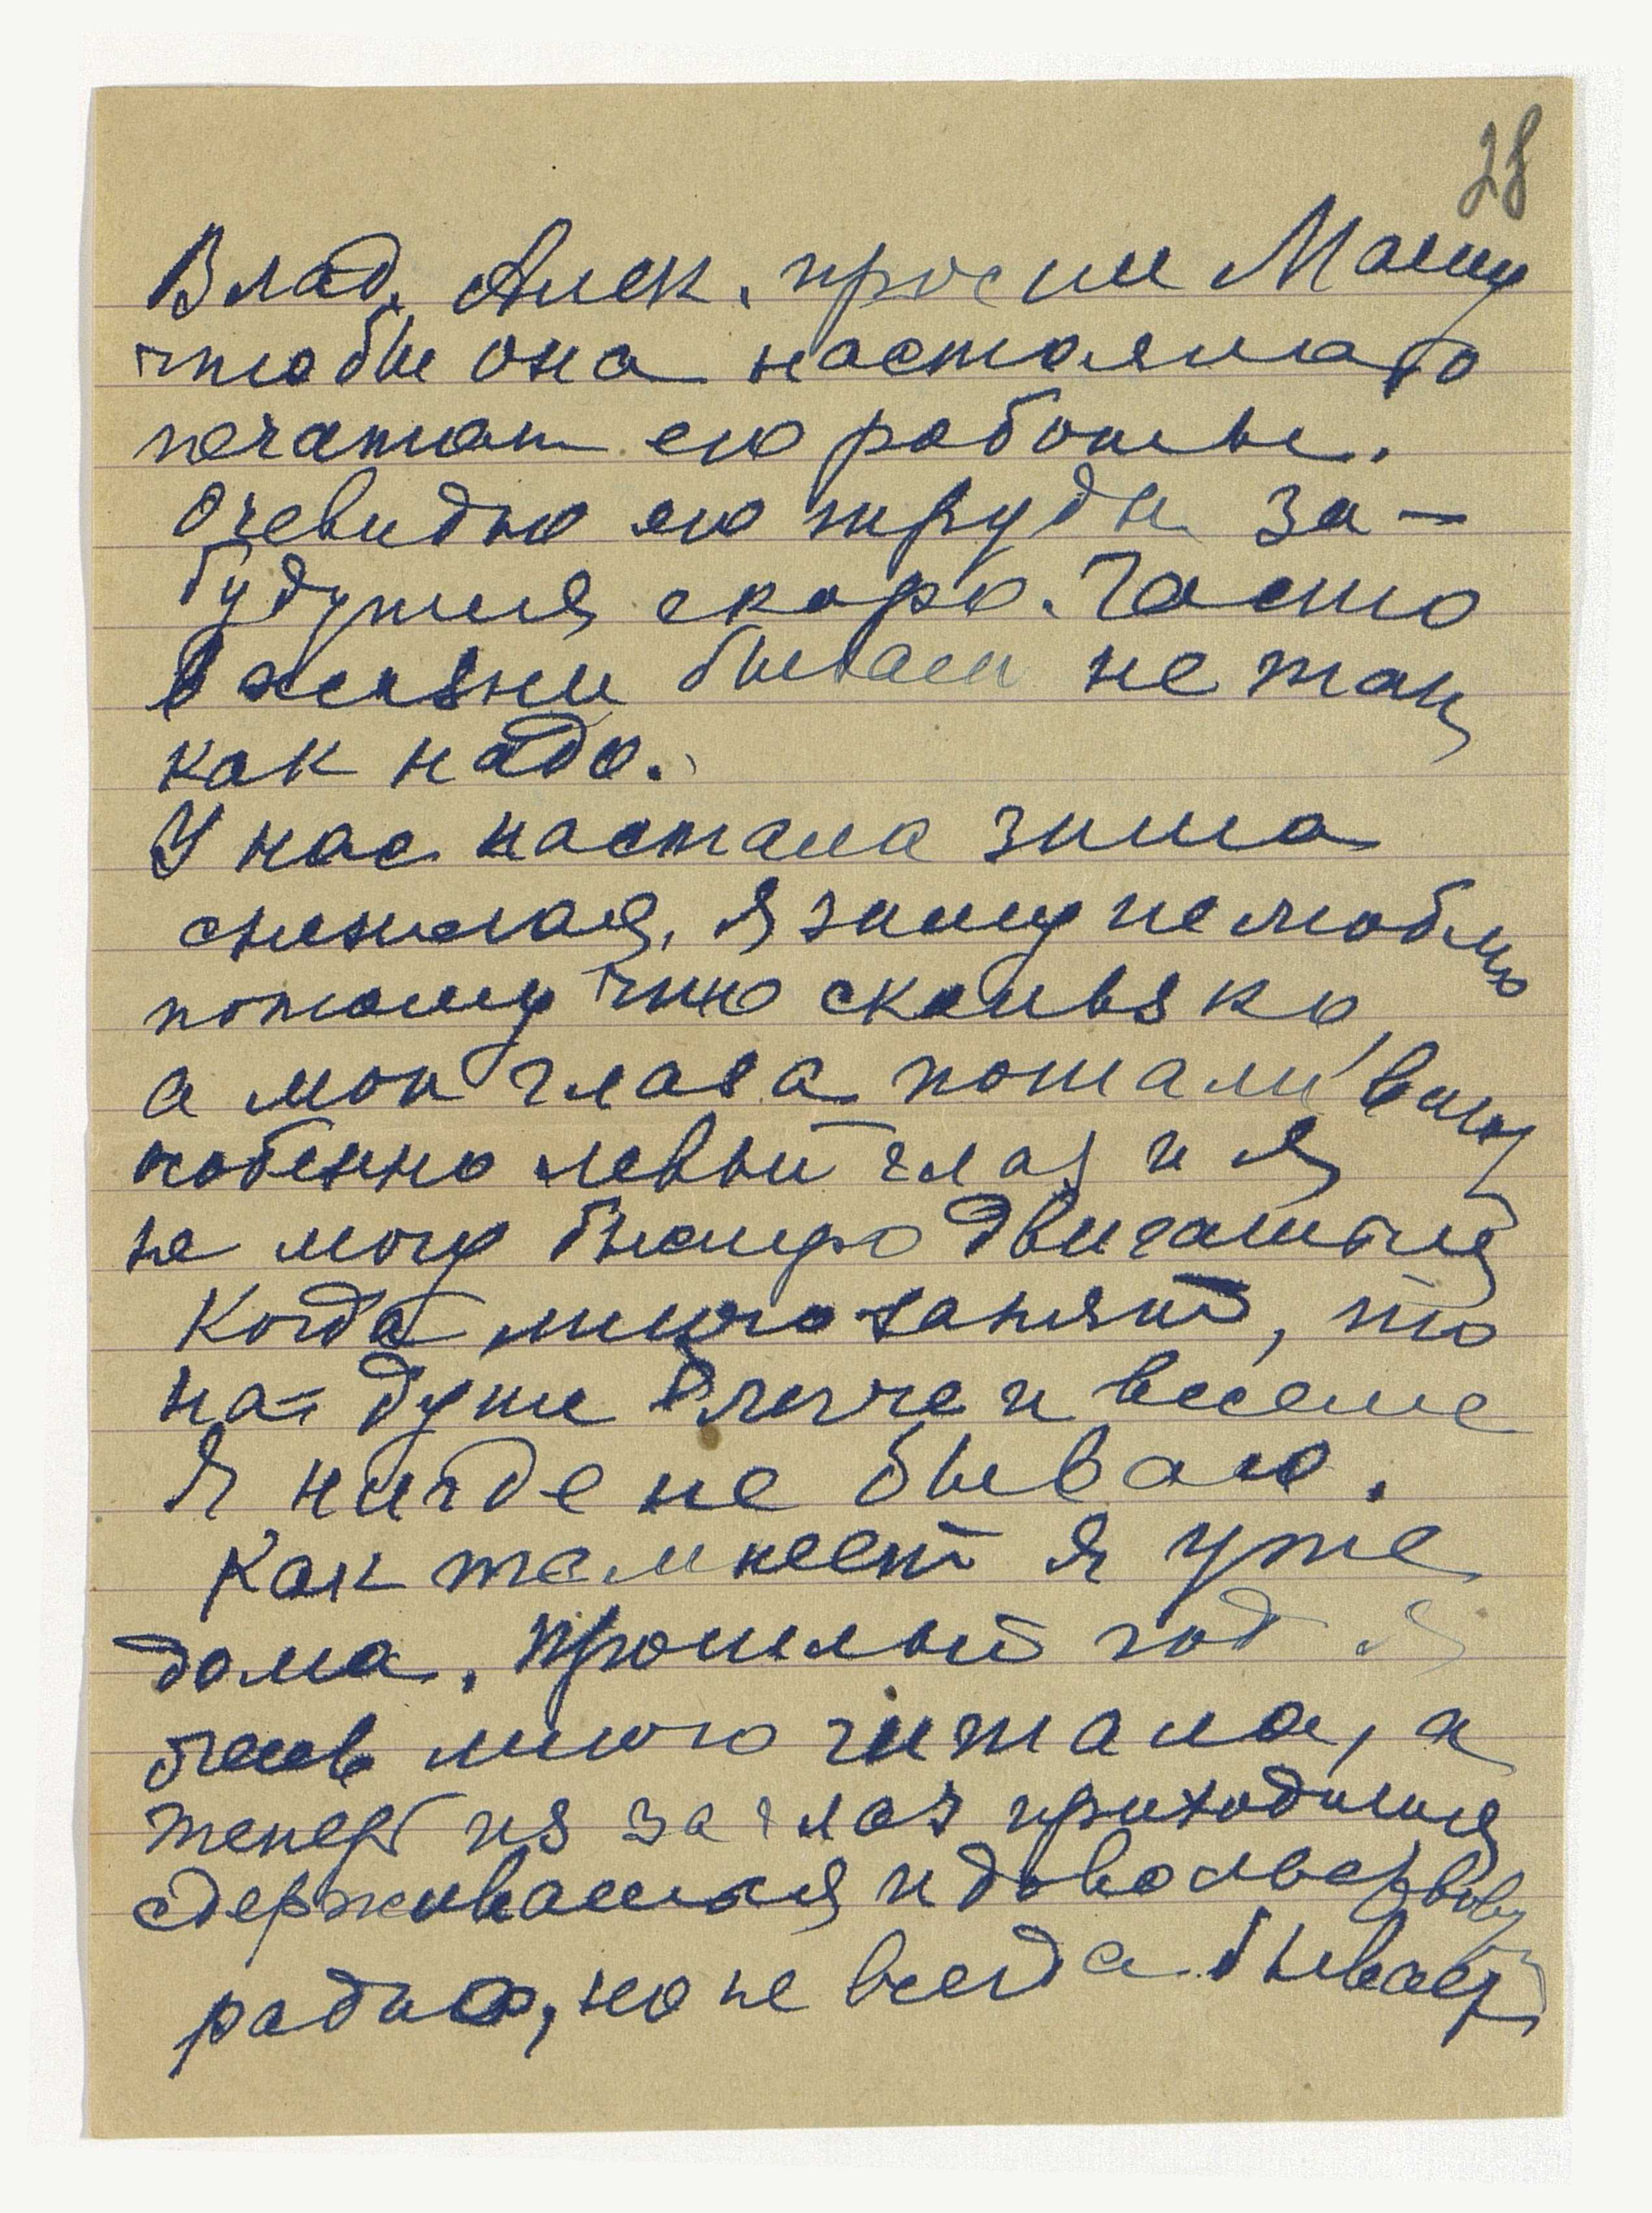 28
Влад. Алек. просил Машу
чтобы она настояла о
печатаи его работы.
Очевидно его труды за-
будутся скоро. Часто
в жизни бывает не так
как надо.
У нас настала зима
снежная, Я зиму не люблю
потому что скользко,
а мои глаза
особенно левый глаз и я
не могу быстро двигаться
Когда много занят, то
на душе легче и веселе
Я нигде не бываю.
Как темнеет я уже
дома. Прошлый год я
очень много читала, а
теперь из за глаз приходится
сдерживаться и довольствов
радио, но не всегда бывает